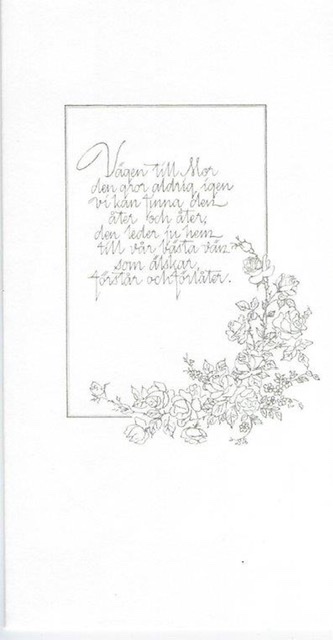 Vägen till Mor
den gror aldrig igen
vi kan finna den
åter och åter,
den leder ju hem
till vår bästa vän
som älskar,
förstår och förlåter.